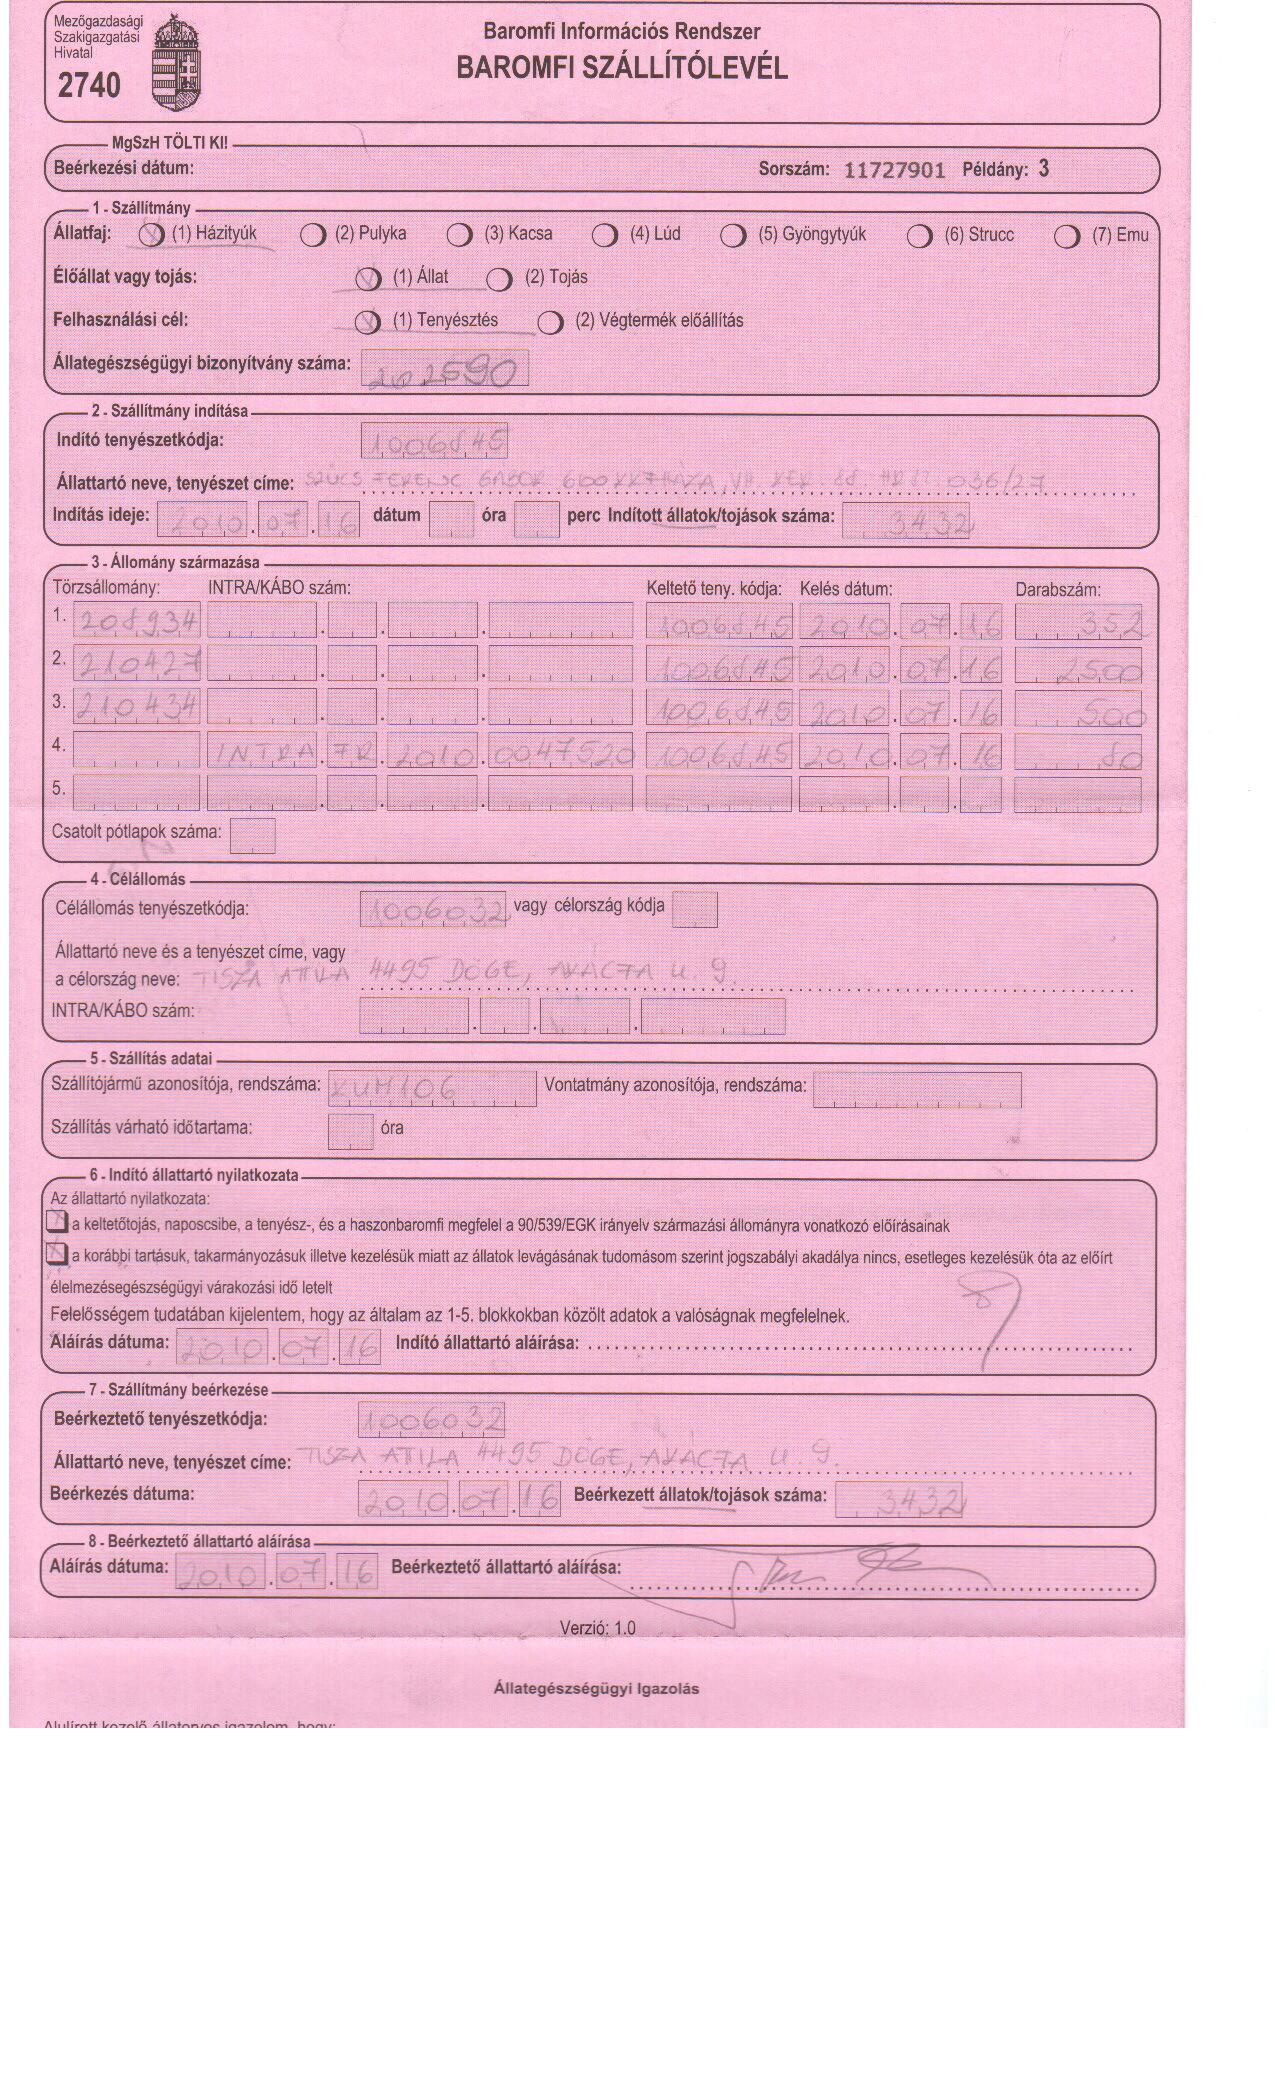 Mezőgazdasági
Szakigazgatási
Hivatal
2740
Baromfi Információs Rendszer
BAROMFI SZÁLLÍTÓLEVÉL
MgSzH TÖLTI KI!
Beérkezési dátum: Sorszám: 11727901 Példány: 3
1 - Szállítmány
Állatfaj: (1) Házityúk (2) Pulyka (3) Kacsa (4) Lúd (5) Gyöngytyúk (6) Strucc (7) Emu
Élőállat vagy tojás: (1) Állat (2) Tojás
Felhasználási cél: (1) Tenyésztés (2) Végtermék előállítás
Állategészségügyi bizonyítvány száma: 202590
2 - Szállítmány indítása
Indító tenyészetkódja: 1006845
Állattartó neve, tenyészet címe: SZŰCS FERENC GÁBOR 6100 KKFHÁZA, VII. KER. 036/27
Indítás ideje: 2010.07.16 dátum óra perc Indított állatok/tojások száma: 3432
3 - Állomány származása
Törzsállomány: INTRA/KÁBO szám: Keltető teny. kódja: Kelés dátum: Darabszám:
1. 208934 1006845 2010.07.16 352
2. 210427 1006845 2010.07.16 2500
3. 210434 1006845 2010.07.16 500
4. INTRA.FR.2010.0047520 1006845 2010.07.16 80
5.
Csatolt pótlapok száma:
4 - Célállomás
Célállomás tenyészetkódja: 1006032 vagy célország kódja
Állattartó neve és a tenyészet címe, vagy
a célország neve: TISZA ATTILA 4495 DÖGE, U. 9.
INTRA/KÁBO szám:
5 - Szállítás adatai
Szállítójármű azonosítója, rendszáma: KUH106 Vontatmány azonosítója, rendszáma:
Szállítás várható időtartama: óra
6 - Indító állattartó nyilatkozata
Az állattartó nyilatkozata:
a keltetőtojás, naposcsibe, a tenyész-, és a haszonbaromfi megfelel a 90/539/EGK irányelv származási állományra vonatkozó előírásainak
a korábbi tartásuk, takarmányozásuk illetve kezelésük miatt az állatok levágásának tudomásom szerint jogszabályi akadálya nincs, esetleges kezelésük óta az előírt
élelmezésegészségügyi várakozási idő letelt
Felelősségem tudatában kijelentem, hogy az általam az 1-5. blokkokban közölt adatok a valóságnak megfelelnek.
Aláírás dátuma: 2010.07.16 Indító állattartó aláírása:
7 - Szállítmány beérkezése
Beérkeztető tenyészetkódja: 1006032
Állattartó neve, tenyészet címe: TISZA ATTILA 4495 DÖGE, U. 9.
Beérkezés dátuma: 2010.07.16 Beérkezett állatok/tojások száma: 3432
8 - Beérkeztető állattartó aláírása
Aláírás dátuma: 2010.07.16 Beérkeztető állattartó aláírása:
Verzió: 1.0
Állategészségügyi Igazolás
Alulírott kezelő állatorvos igazolom, hogy: